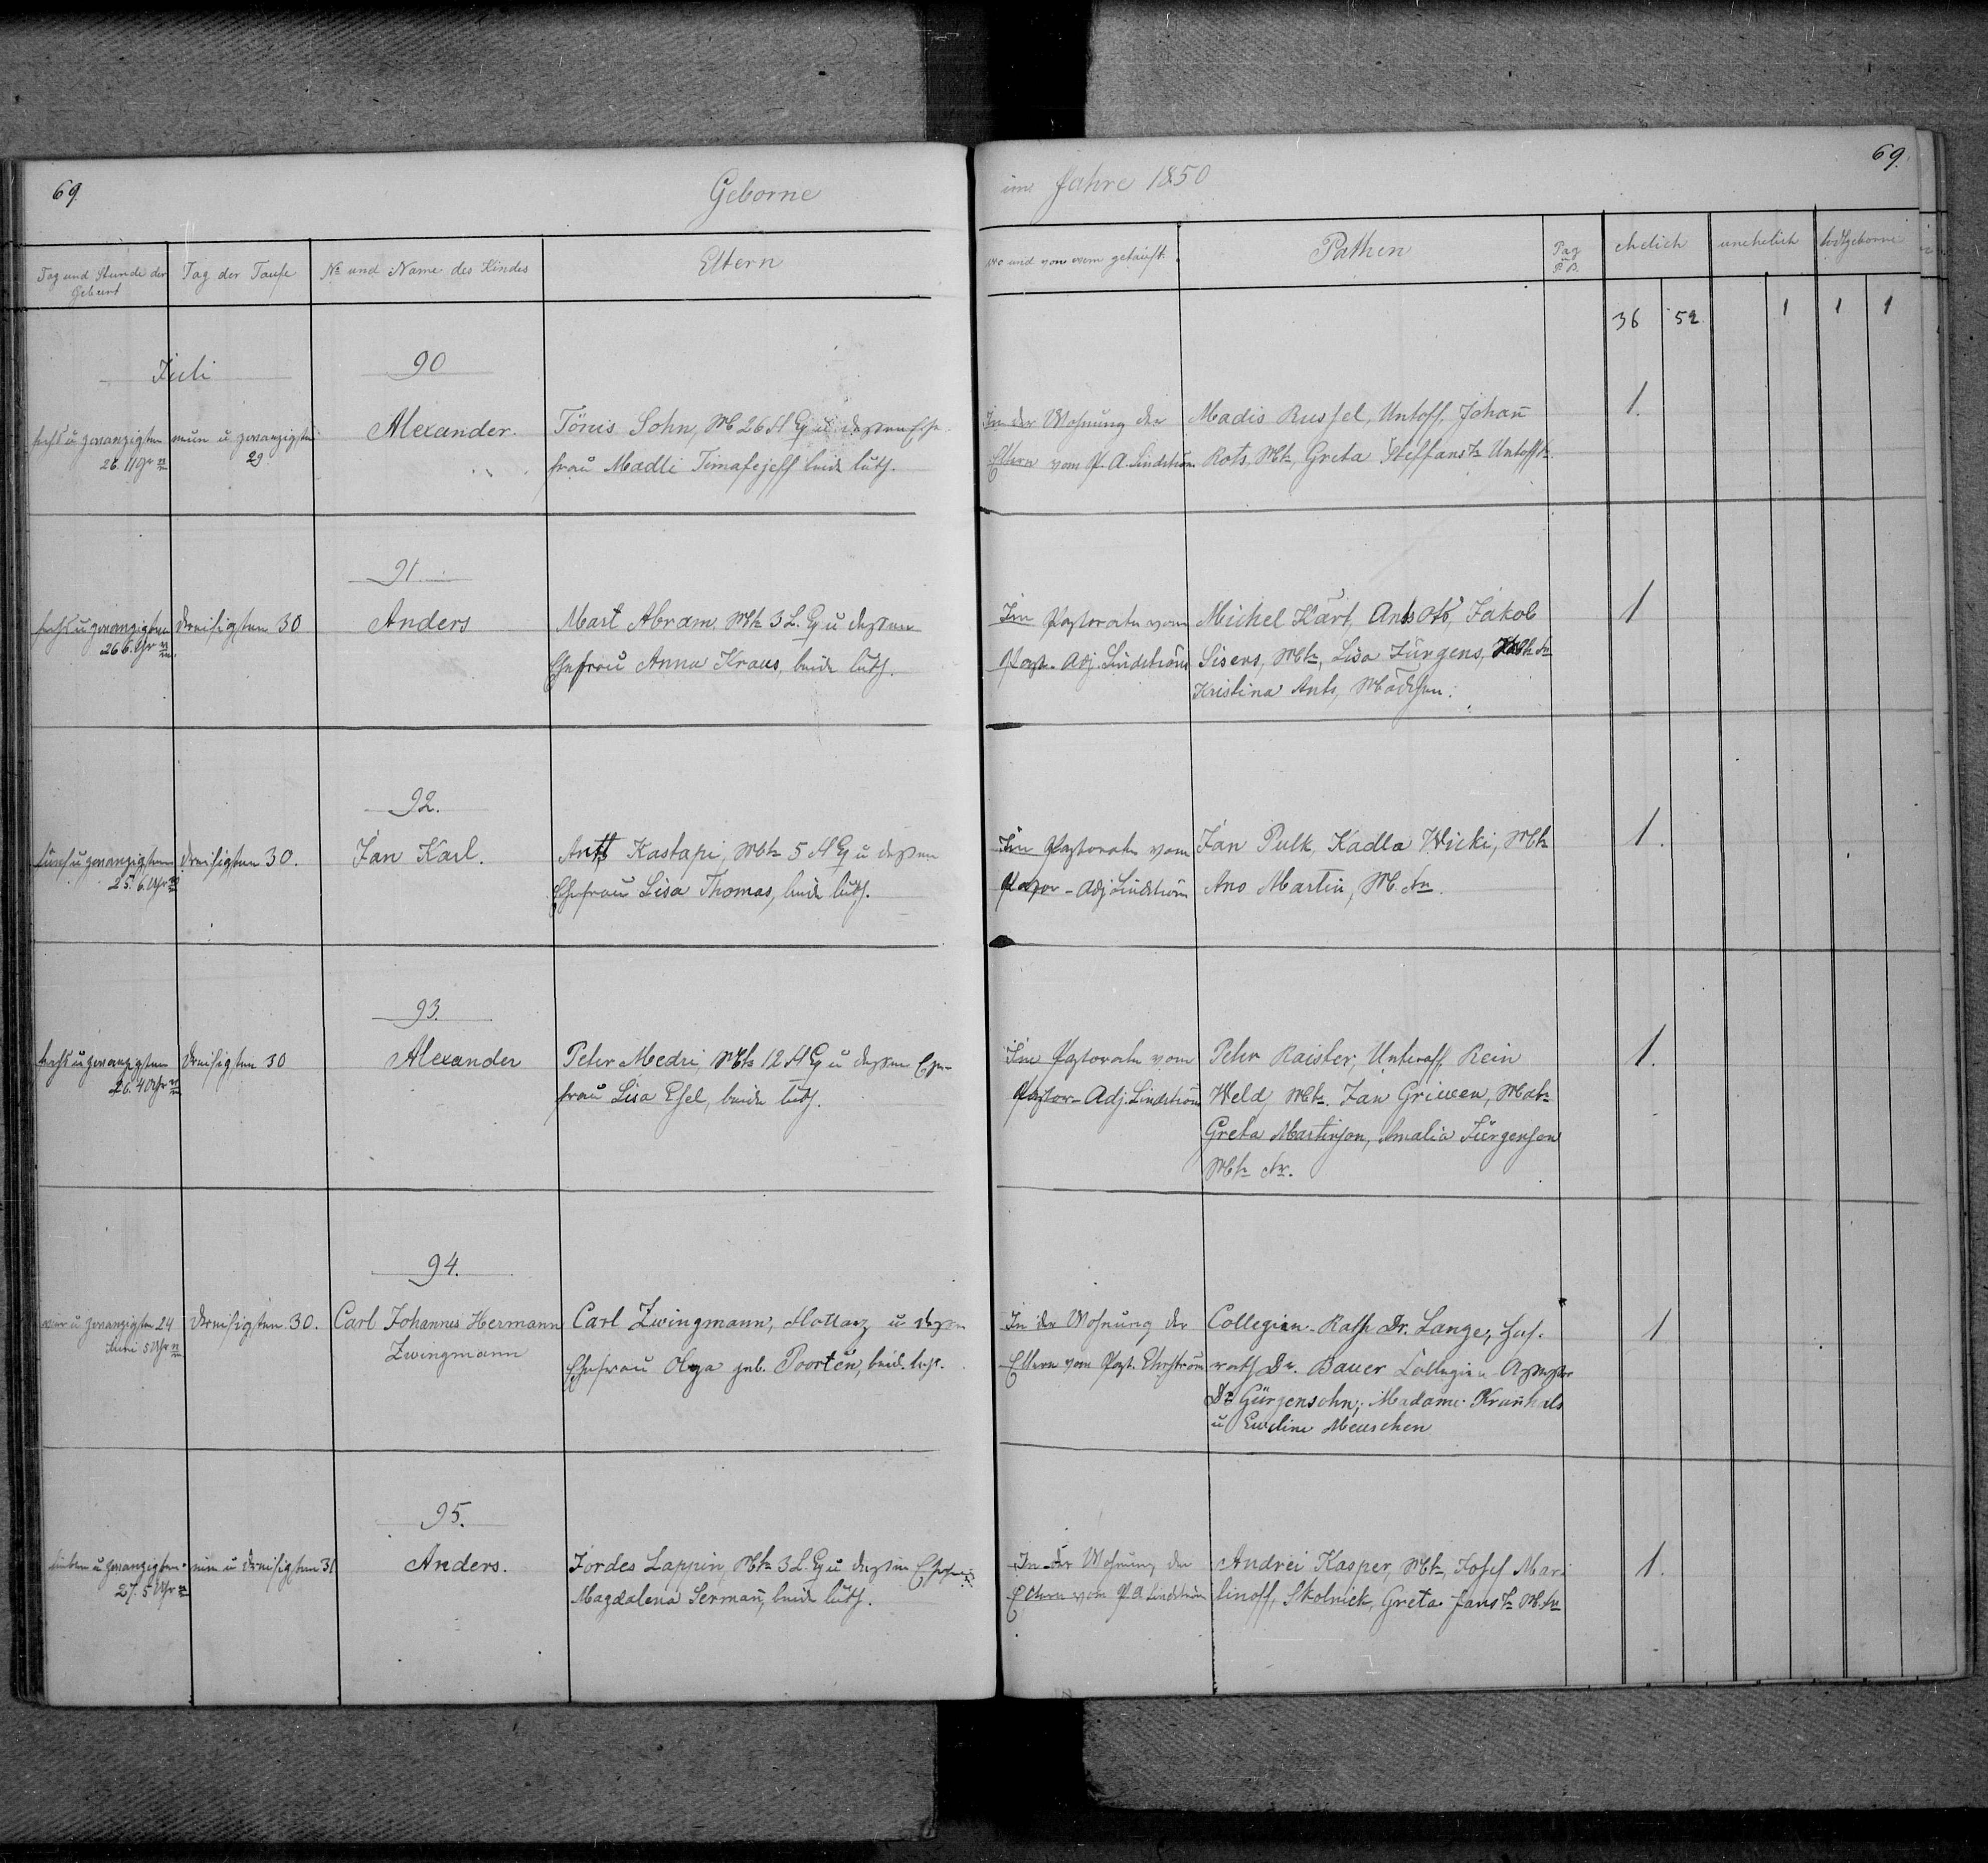 69.
Geborne
im Jahre 1850
69.
Tag und Stunde der Geburt
Tag der Taufe
No und Name des Kindes
Eltern
wo und von wem getauft.
Pathen
Pag
P. B.
ehelich
unehelich
todtgeborne
36 52 1 1 1
Juli
90
sechs u zwanzigsten
26. 11 Uhr
neun u zwanzigsten
29
Alexander.
Tönis Sohn, M 26 H Eq u dessen Ehe
frau Madli Timafejeff beide luth.
In der Wohnung der
Eltern vom P. A. Lindström
Madis Russel, Untoff, Johan̄
Rots, Mtr, Greta Steffans Untoff
1.
91
sechs u zwanzigsten
26 6. Uhr
dreisigsten 30
Anders
Mart Abram Mtr 3 L. Eq u dessen
Ehefrau Anna Kraus, beide luth.
Im Pastorate vom
Past. Adj. Lindström
Michel Kärt, Ants Ots, Jakob
Sisens, Mtr, Lisa Jürgens,
Kristina Ants, Mädchen.
1
92.
fünf u zwanzigsten
25. 6. Uhr
dreisigsten 30.
Jan Karl.
Ants Kastapi, Mtr 5 H Eq u dessen
Ehefrau Lisa Thomas, beide luth.
Im Pastorate vom
Pastor-Adj Lindström
Jan Pulk, Kadla Wicki, Mtr
Ano Martin, M.
1.
93.
sechs u zwanzigsten
26. 4 Uhr
dreisigsten 30
Alexander
Peter Medri, Mtr 12 H Eq u dessen Ehe-
frau Lisa Esel, beide luth.
Im Pastorate vom
Pastor-Adj. Lindström
Peter Raister, Unteroff, Rein
Weld, Mtr. Jan Griwen, Matr
Greta Martinson, Amalia Jürgenson
Mtr
1.
94.
vier u zwanzigsten 24
Juni 5 Uhr
dreisigsten 30.
Carl Johannes Hermann
Zwingmann
Carl Zwingmann, u dessen
Ehefrau Olga geb. Poorten, beide luth.
In der Wohnung der
Eltern vom Past. Ehrström
Collegien-Rath Dr. Lange, Hof-
rath Dr. Bauer Collegien Assessor
Dr Gürgensohn, Madame Kran̄hals
u Eweline Meuschen
1
95.
sieben u zwanzigsten
27. 5 Uhr
ein u dreisigsten 31
Anders.
Jordes Lappin, Mtr 3 L. Eq u dessen Ehefrau
Magdalena Serman̄, beide luth.
In der Wohnung der
Eltern vom P. A. Lindström
Andrei Kasper, Mtr, Josef Mar-
tinoff, Skolnick, Greta Jans M.
1.